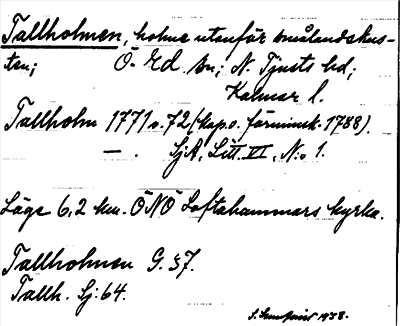 Tallholmen, holme utanför smålandskus-
ten; Ö. Ed sn; N. Tjusts hd;
Kalmar l.
Tallholm 1771 o. 72 (kap. o. förminsk. 1788).
— . SjA, Litt. VI, N:o 1.
Läge 6,2 km. ÖNÖ Loftahammars kyrka.
Tallholmen G. 57.
Tallh. Sj: 64.
1938.